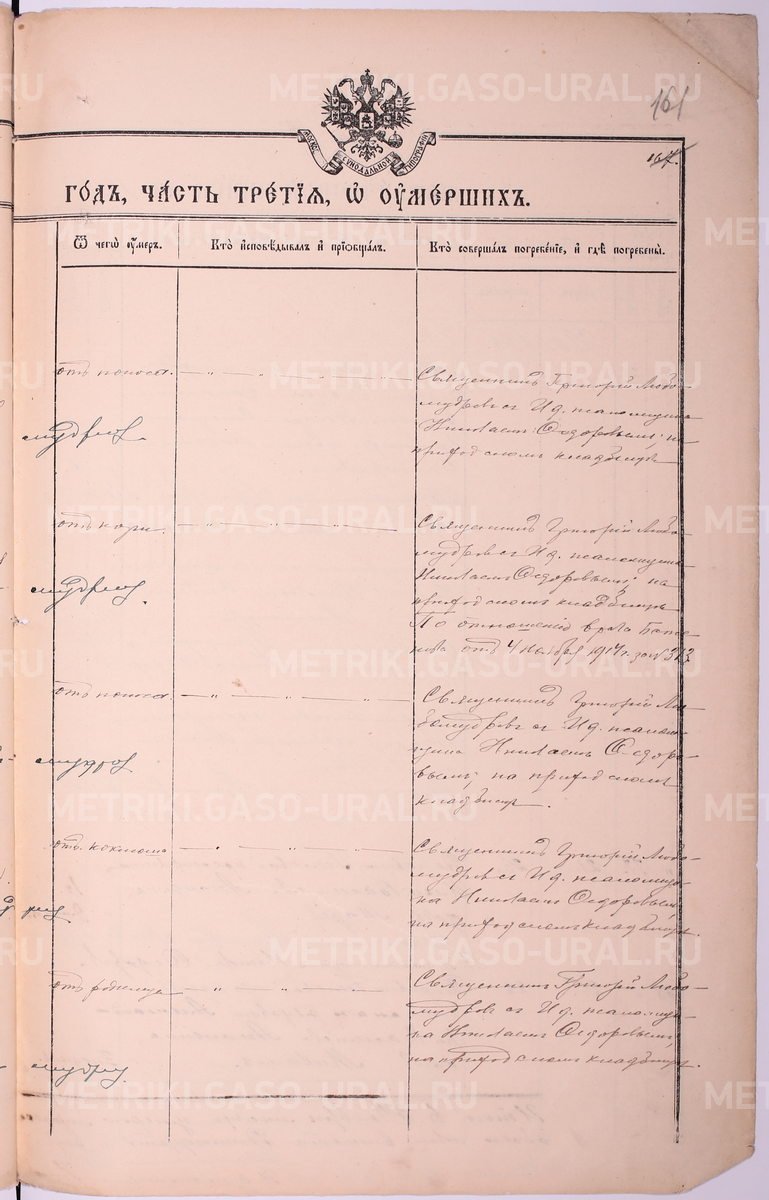 161
167.
МОСКОВ. СѴНОДАЛЬНОЙ ТИПОГРАФІИ
ГОДЪ, ЧАСТЬ ТРЕТІЯ, Ѿ ОУМЕРШИХЪ.
Ѿ чегѡ оумеръ.
Кто исповѣдывалъ и прїобщалъ.
Кто совершалъ погребенїе, и гдѣ погребены.
отъ поноса.
Священникъ Григорій Любо-
мудровъ съ И. д. псаломщика
Николаемъ Ѳедоровымъ; на
приходскомъ кладбищѣ
отъ кори.
Священникъ Григорій Любо-
мудровъ съ И. д. псаломщика
Николаемъ Ѳедоровымъ; на
приходскомъ кладбищѣ
По отношенію врача
отъ 4 Ноября 1917 г. за № 313
отъ поноса.
Священникъ Григорій Лю-
бомудровъ съ И. д. псалом-
щика Николаемъ Ѳедоро-
вымъ; на приходскомъ
кладбищѣ.
отъ коклюша
Священникъ Григорій Любо-
мудровъ съ И. д. псаломщи-
ка Николаемъ Ѳедоровымъ,
на приходскомъ кладбищѣ.
отъ родимца
Священникъ Григорій Любо-
мудровъ съ И. д. псаломщи-
ка Николаемъ Ѳедоровымъ,
на приходскомъ кладбищѣ.
METRIKI.GASO-URAL.RU